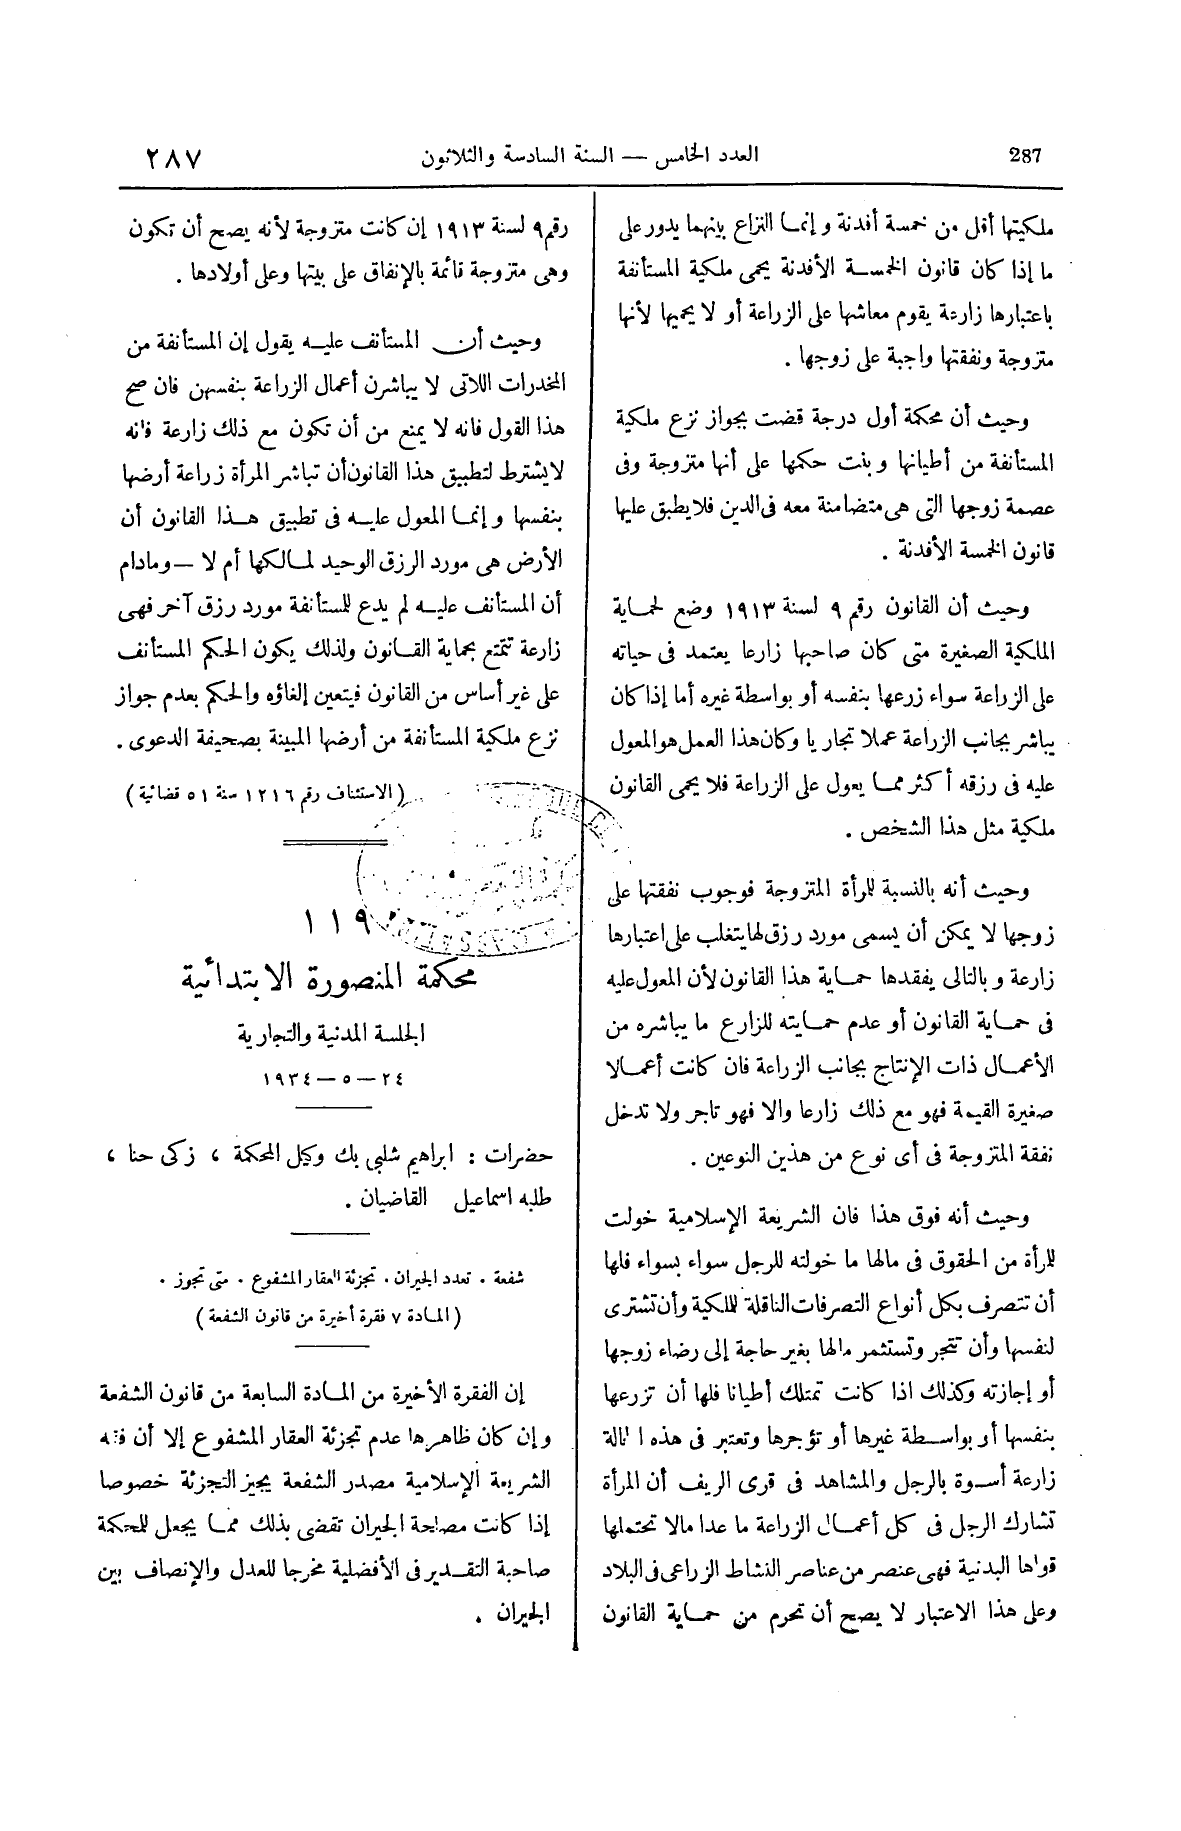 287
العدد الخامس — السنة السادسة والثلاثون
٢٨٧
ملكيتها أقل من خمسة أفدنة وإنما النزاع بينهما يدور على
ما إذا كان قانون الخمسة الأفدنة يحمى ملكية المستأنفة
باعتبارها زارعة يقوم معاشها على الزراعة أو لا يحميها لأنها
متزوجة ونفقتها واجبة على زوجها .
وحيث أن محكمة أول درجة قضت بجواز نزع ملكية
المستأنفة من أطيانها وبنت حكمها على أنها متزوجة وفى
عصمة زوجها التى هى متضامنة معه فى الدين فلا يطبق عليها
قانون الخمسة الأفدنة .
وحيث أن القانون رقم ٩ لسنة ١٩١٣ وضع لحماية
الملكية الصغيرة متى كان صاحبها زارعا يعتمد فى حياته
على الزراعة سواء زرعها بنفسه أو بواسطة غيره أما إذا كان
يباشر بجانب الزراعة عملا تجاريا وكان هذا العمل هو المعول
عليه فى رزقه أكثر مما يعول على الزراعة فلا يحمى القانون
ملكية مثل هذا الشخص .
وحيث أنه بالنسبة للمرأة المتزوجة فوجوب نفقتها على
زوجها لا يمكن أن يسمى مورد رزق لها يتغلب على اعتبارها
زارعة وبالتالى يفقدها حماية هذا القانون لأن المعول عليه
فى حماية القانون أو عدم حمايته للزارع ما يباشره من
الأعمال ذات الإنتاج بجانب الزراعة فان كانت أعمالا
صغيرة القيمة فهو مع ذلك زارعا والا فهو تاجر ولا تدخل
نفقة المتزوجة فى أى نوع من هذين النوعين .
وحيث أنه فوق هذا فان الشريعة الإسلامية خولت
للمرأة من الحقوق فى مالها ما خولته للرجل سواء بسواء فلها
أن تتصرف بكل أنواع التصرفات الناقلة للملكية وأن تشترى
لنفسها وأن تتجر وتستثمر مالها بغير حاجة إلى رضاء زوجها
أو إجازته وكذلك اذا كانت تمتلك أطيانا فلها أن تزرعها
بنفسها أو بواسطة غيرها أو تؤجرها وتعتبر فى هذه الحالة
زارعة أسوة بالرجل والمشاهد فى قرى الريف أن المرأة
تشارك الرجل فى كل أعمال الزراعة ما عدا مالا تحتملها
قواها البدنية فهى عنصر من عناصر النشاط الزراعى فى البلاد
وعلى هذا الاعتبار لا يصح أن تحرم من حماية القانون
رقم ٩ لسنة ١٩١٣ إن كانت متزوجة لأنه يصح أن تكون
وهى متزوجة قائمة بالإنفاق على بيتها وعلى أولادها .
وحيث أن المستأنف عليه يقول إن المستأنفة من
المخدرات اللاتى لا يباشرن أعمال الزراعة بنفسهن فان صح
هذا القول فانه لا يمنع من أن تكون مع ذلك زارعة فانه
لا يشترط لتطبيق هذا القانون أن تباشر المرأة زراعة أرضها
بنفسها وإنما المعول عليه فى تطبيق هذا القانون أن
الأرض هى مورد الرزق الوحيد لمالكها أم لا — ومادام
أن المستأنف عليه لم يدع للمستأنفة مورد رزق آخر فهى
زارعة تتمتع بحماية القانون ولذلك يكون الحكم المستأنف
على غير أساس من القانون فيتعين إلغاؤه والحكم بعدم جواز
نزع ملكية المستأنفة من أرضها المبينة بصحيفة الدعوى .
(الاستئناف رقم ١٢١٦ سنة ٥١ قضائية)
١١٩
محكمة المنصورة الابتدائية
الجلسة المدنية والتجارية
٢٤ — ٥ — ١٩٣٤
حضرات : ابراهيم شلبى بك وكيل المحكمة ، زكى حنا ،
طلبه اسماعيل القاضيان .
شفعة . تعدد الجيران . تجزئة العقار المشفوع . متى تجوز .
(المادة ٧ فقرة أخيرة من قانون الشفعة)
إن الفقرة الأخيرة من المادة السابعة من قانون الشفعة
وإن كان ظاهرها عدم تجزئة العقار المشفوع إلا أن فقه
الشريعة الإسلامية مصدر الشفعة يجيز التجزئة خصوصا
إذا كانت مصلحة الجيران تقضى بذلك مما يجعل للمحكمة
صاحبة التقدير فى الأفضلية مخرجا للعدل والإنصاف بين
الجيران .